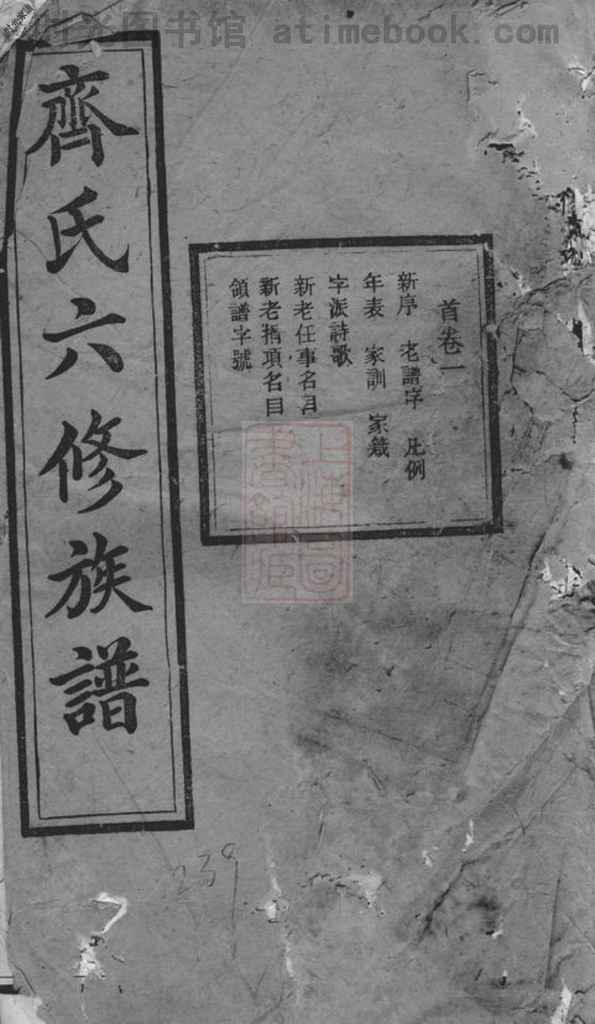 图书馆 atimebook.com
齊氏六修族譜
首卷一
新序 老譜序 凡例
年表 家訓 家箴
字派詩歌
新老任事名目
新老捐項名目
領譜字號
239